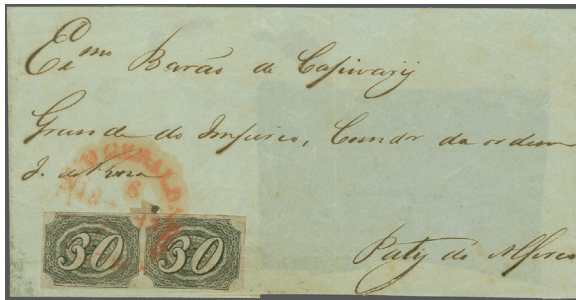 Exmo Barão de Capivarÿ
Grande do Imperio, Comdor da ordem
I. da Rosa
30 30
Paty do Alferes